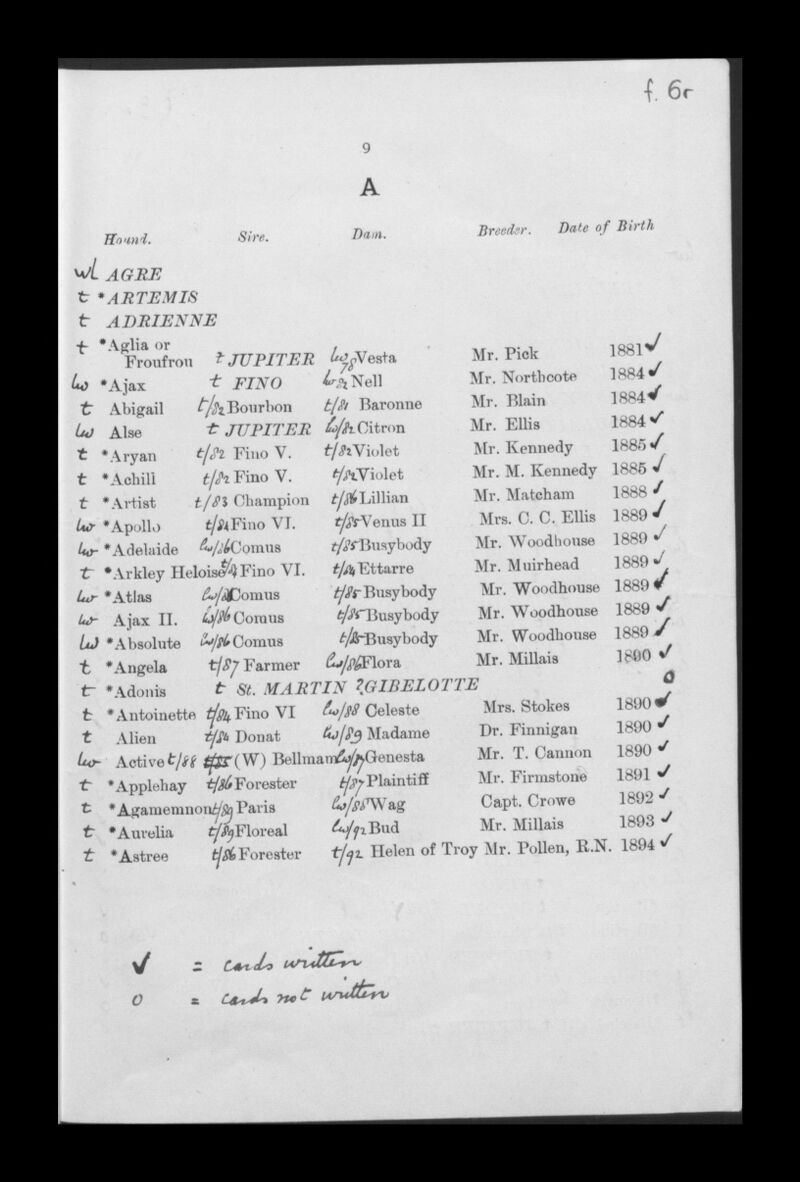 f. 6r
9
A
Hound. Sire. Dam. Breeder. Date of Birth
wl AGRE
t *ARTEMIS
t ADRIENNE
t *Aglia or
Froufrou t JUPITER lw/78 Vesta Mr. Pick 1881 ✓
lw *Ajax t FINO lw 82 Nell Mr. Northcote 1884 ✓
t Abigail t/82 Bourbon t/81 Baronne Mr. Blain 1884 ✓
lw Alse t JUPITER lw/82 Citron Mr. Ellis 1884 ✓
t *Aryan t/82 Fino V. t/82 Violet Mr. Kennedy 1885 ✓
t *Achill t/82 Fino V. t/82 Violet Mr. M. Kennedy 1885 ✓
t *Artist t/83 Champion t/86 Lillian Mr. Matcham 1888 ✓
lw *Apollo t/84 Fino VI. t/85 Venus II Mrs. C. C. Ellis 1889 ✓
lw *Adelaide lw/86 Comus t/85 Busybody Mr. Woodhouse 1889 ✓
t *Arkley Heloise t/84 Fino VI. t/84 Ettarre Mr. Muirhead 1889 ✓
lw *Atlas lw/86 Comus t/85 Busybody Mr. Woodhouse 1889 ✓
lw Ajax II. lw/86 Comus t/85 Busybody Mr. Woodhouse 1889 ✓
lw *Absolute lw/86 Comus t/85 Busybody Mr. Woodhouse 1889 ✓
t *Angela t/87 Farmer lw/86 Flora Mr. Millais 1890 ✓
t *Adonis t St. MARTIN ? GIBELOTTE o
t *Antoinette t/84 Fino VI lw/88 Celeste Mrs. Stokes 1890 ✓
t Alien t/84 Donat lw/89 Madame Dr. Finnigan 1890 ✓
lw Active t/88 t/85 (W) Bellman lw/87 Genesta Mr. T. Cannon 1890 ✓
t *Applehay t/86 Forester t/87 Plaintiff Mr. Firmstone 1891 ✓
t *Agamemnon t/89 Paris lw/88 Wag Capt. Crowe 1892 ✓
t *Aurelia t/89 Floreal lw/92 Bud Mr. Millais 1893 ✓
t *Astree t/86 Forester t/92 Helen of Troy Mr. Pollen, R.N. 1894 ✓
✓ = cards written
o = cards not written